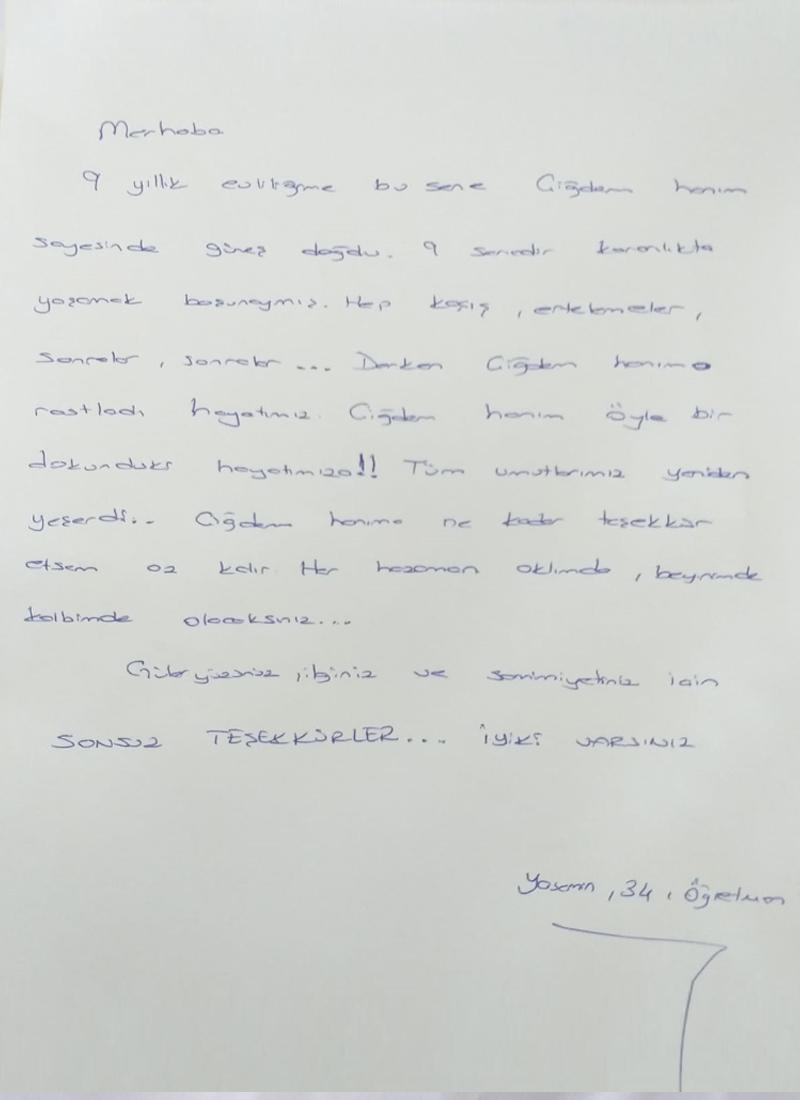 Merhaba
9 yıllık evliliğime bu sene Çiğdem hanım
sayesinde güneş doğdu. 9 senedir karanlıkta
yaşamak boşunaymış. Hep kaçış, ertelemeler,
sonralar, sonralar... Derken Çiğdem hanıma
rastladı hayatımız. Çiğdem hanım öyle bir
dokundukı hayatımıza!! Tüm umutlarımız yeniden
yeşerdi.. Çiğdem hanıma ne kadar teşekkür
etsem az kalır. Her hazaman aklımda, beynimde
kalbimde olacaksınız...
Güler yüzünüz, ilginiz ve samimiyetiniz için
SONSUZ TEŞEKKÜRLER... İYİKİ VARSINIZ
Yasemin, 34, Öğretmen